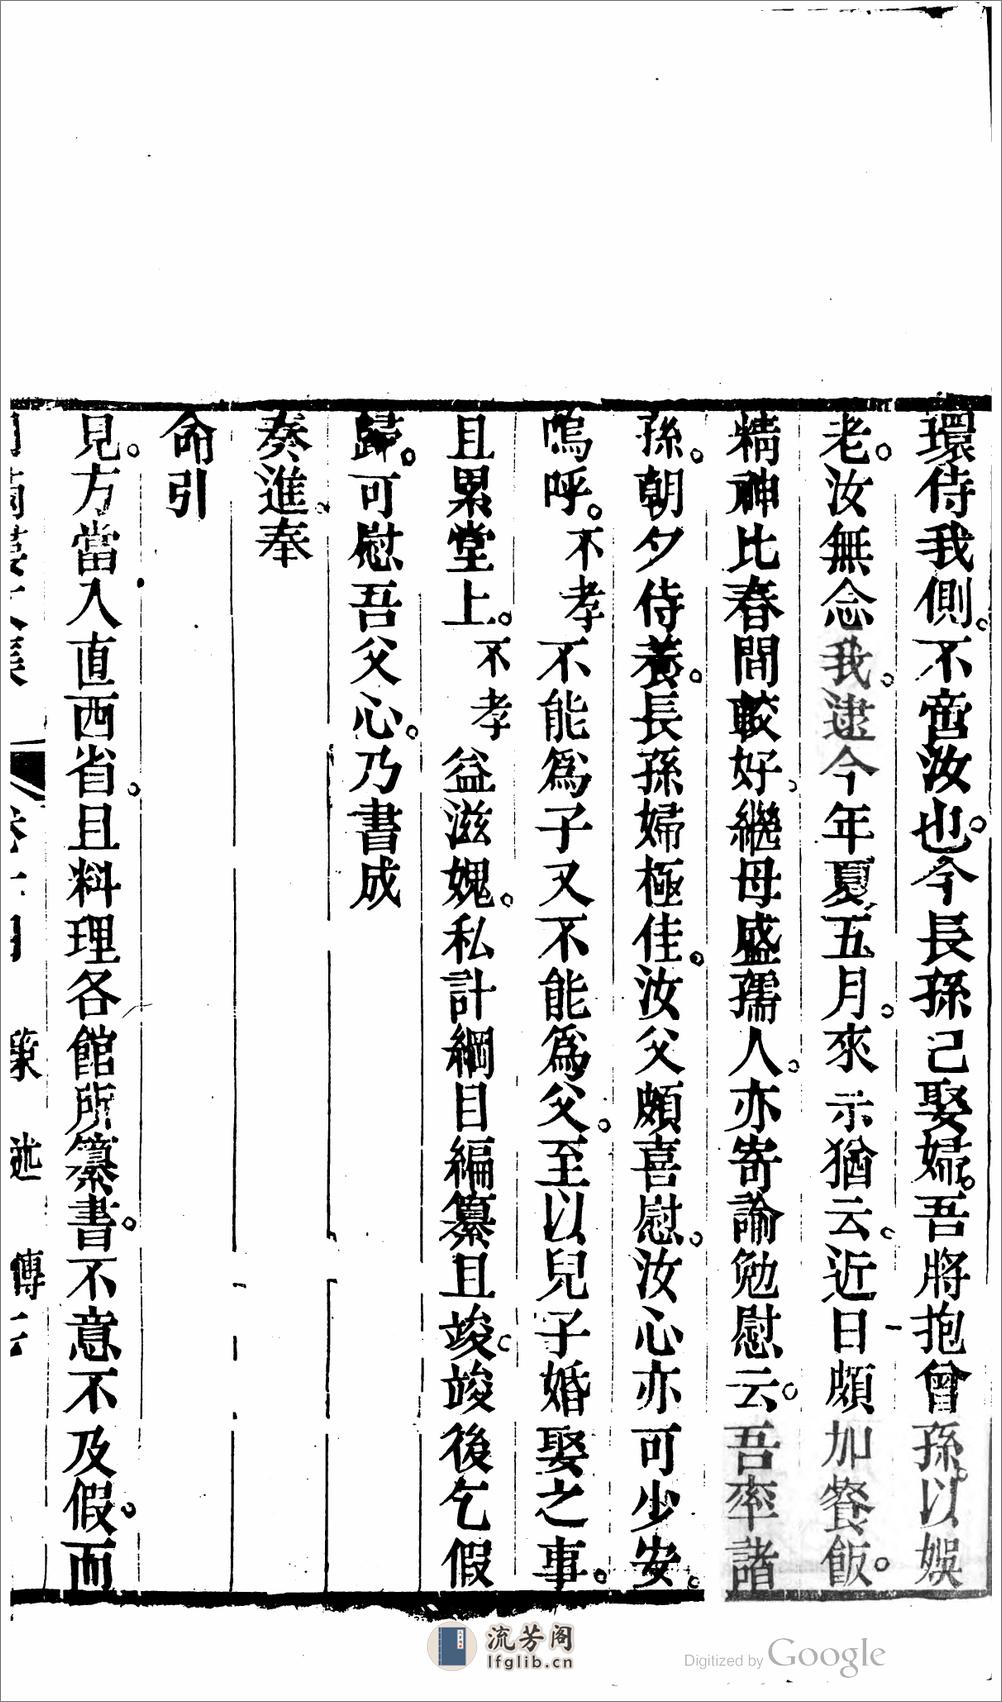 環侍我側。不啻汝也。今長孫己娶婦。吾將抱曾孫。以娛
老。汝無念我。逮今年夏五月。來示猶云。近日頗加餐飯。
精神比春間較好。繼母盛孺人。亦寄諭勉慰云。吾率諸
孫。朝夕侍養。長孫婦極佳。汝父頗喜慰。汝心亦可少安。
嗚呼。不孝不能爲子又不能爲父。至以兒子婚娶之事。
且累堂上。不孝益滋媿。私計綱目編纂且竣。竣後乞假
歸。可慰吾父心。乃書成
奏進奉
命引
見。方當入直西省。且料理各館所纂書。不意不及假。而
述 傳
流芳阁
lfglib.cn
Digitized by Google